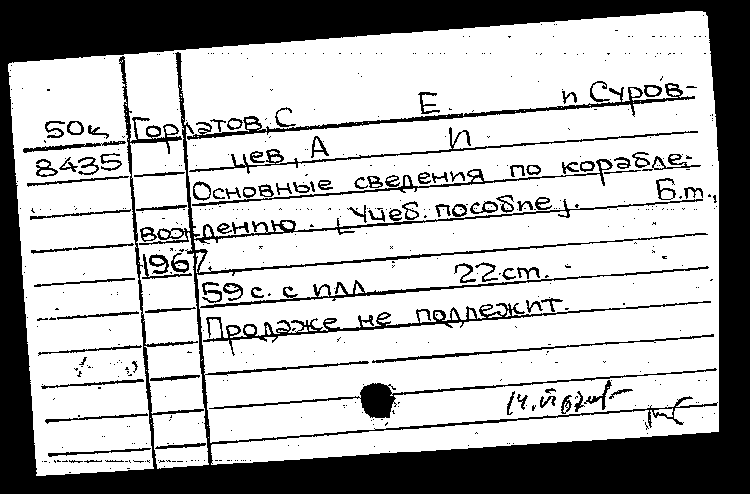 50к Горлатов, С Е и Суров-
8435 цев, А И
Основные сведения по корабле-
вождению. [Учеб. пособие]. Б.т.,
1967.
59 с. с илл. 22 cm.
Продаже не подлежит.